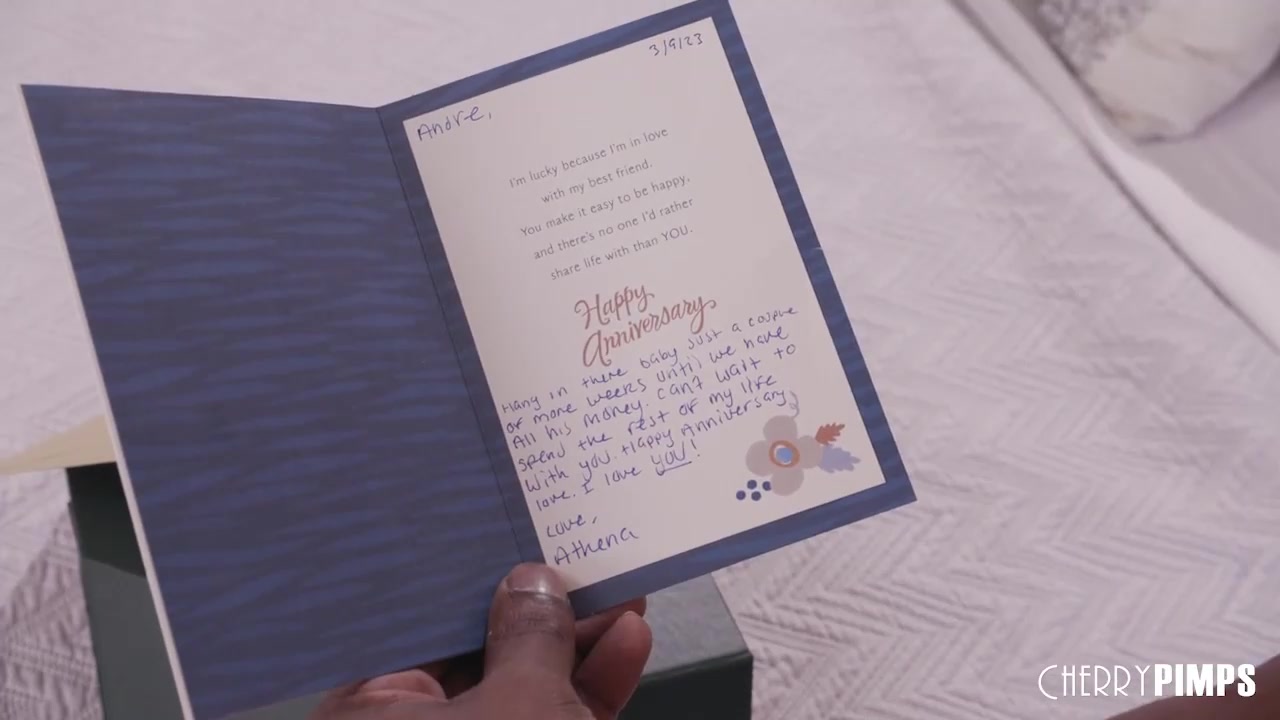 3/9/23
Andre,
I'm lucky because I'm in love
with my best friend.
You make it easy to be happy,
and there's no one I'd rather
share life with than YOU.
Happy
Anniversary
Hang in there baby just a couple
of more weeks until we have
All his money. Can't wait to
spend the rest of my life
with you. Happy Anniversary
love. I love YOU!
Love,
Athena
CHERRYPIMPS